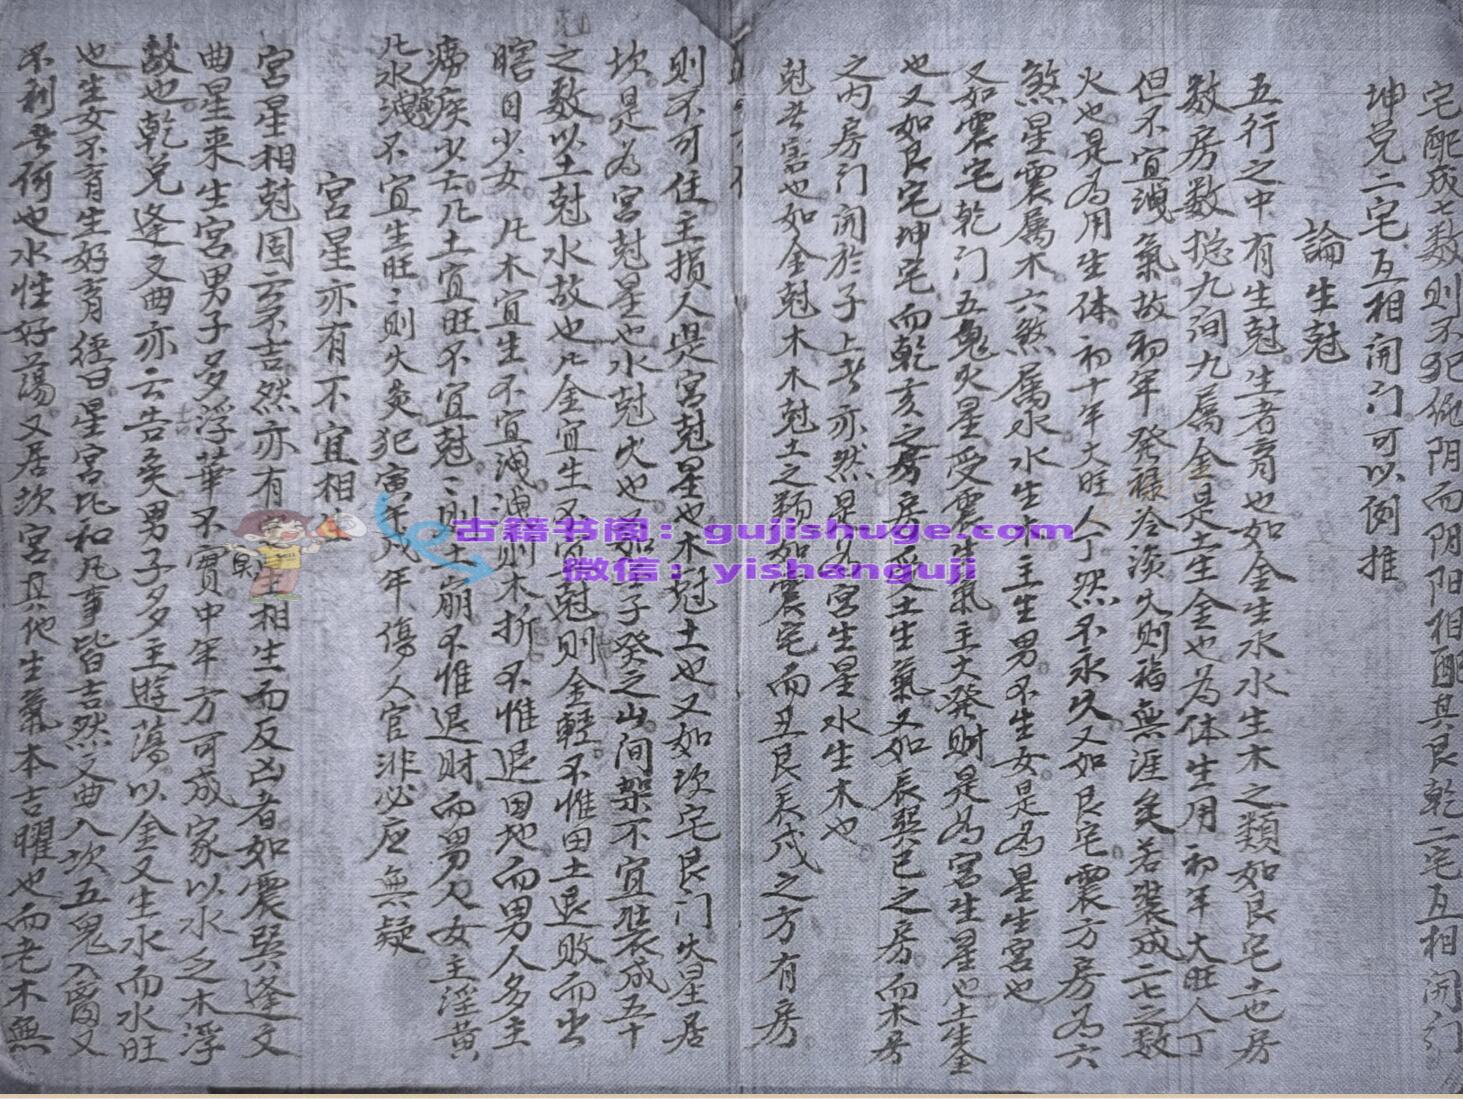 宅配成七数則不犯純阴而阴阳相配其艮乾二宅互相開门
坤兑二宅互相開门可以例推
論生尅
五行之中有生尅生者育也如金生水水生木之類如艮宅土也房
数房数捴九间九属金是土生金也为体生用初年大旺人丁
但不宜洩氣故初年發福冷淡久則福無涯矣若装成二七之数
火也是为用生体初十年大旺人丁然不永久又如艮宅震方房为六
煞星震属木六煞属水水生木主生男不生女是为星生宮也
又如震宅乾门五鬼火星受震生氣主大發財是为宮生星也土生金
也又如艮宅坤宅而乾亥之房房受土生氣又如辰巽巳之房而木房
之内房门開於子上者亦然是为宮生星水生木也
尅者害也如金尅木木尅土之類如震宅而丑艮天戊之方有房
則不可住主损人是宮尅星也木尅土也又如坎宅艮门火星居
坎是为宮尅星也水尅火也又如壬子癸之山间架不宜装成五十
之数以土尅水故也凡金宜生不宜尅則金輕不惟田土退敗而出
瞎目少女 凡木宜生不宜洩洩則木折不惟退田地而男人多主
痨疾少亡凡土宜旺不宜尅尅則土崩不惟退財而男人女主淫黄
凡水洩不宜生旺旺則火炎犯寅午戌年傷人官非必应無疑
宮星亦有不宜相
宮星相尅固云不吉然亦有 相生而反凶者如震巽逢文
曲星来生宮男子多浮華不實中年方可成家以水之木浮
故也乾兑逢文曲亦云吉矣男子多主遊蕩以金又生水而水旺
也生女不育生好育徑曰星宮比和凡事皆吉然文曲入坎五鬼入离又
不利者何也水性好蕩又居坎宮其他生氣本吉曜也而老木無
古籍书阁：gujishuge.com
微信：yishanguji